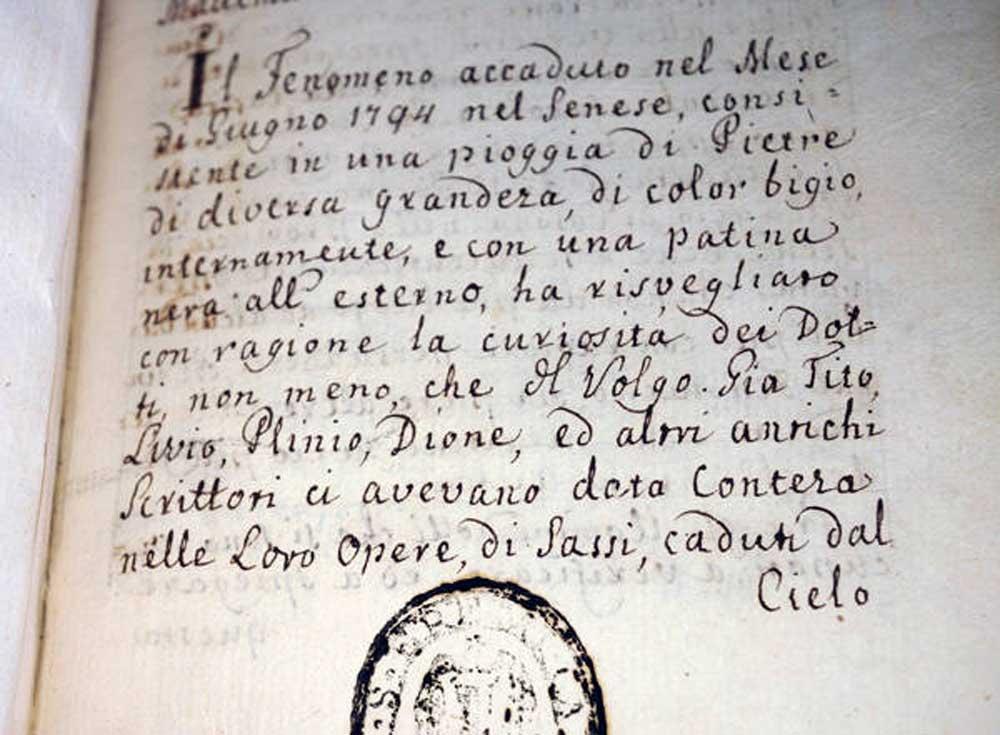 Il Fenomeno accaduto nel Mese
di Giugno 1794 nel Senese, consi =
stente in una pioggia di Pietre
di diversa grandeza, di color bigio,
internamente, e con una patina
nera all' esterno, ha risvegliato
con ragione la curiosità dei Dot=
ti, non meno, che il Volgo. Gia Tito,
Livio, Plinio, Dione, ed altri antichi
Scrittori ci avevano data Conteza
nelle Loro Opere, di Sassi, caduti dal
Cielo